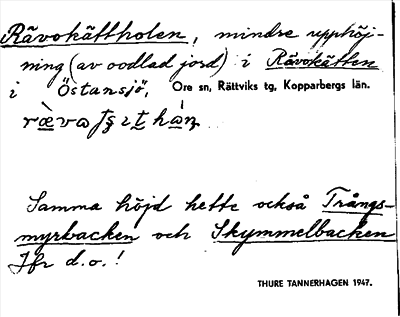 Rävokättholen, mindre upphöj-
ning (av oodlad jord) i Rävokätten
i Östansjö, Ore sn, Rättviks tg, Kopparbergs län.
Samma höjd hette också Trångs-
myrbacken och Skymmelbacken
Jfr d.o.!
THURE TANNERHAGEN 1947.